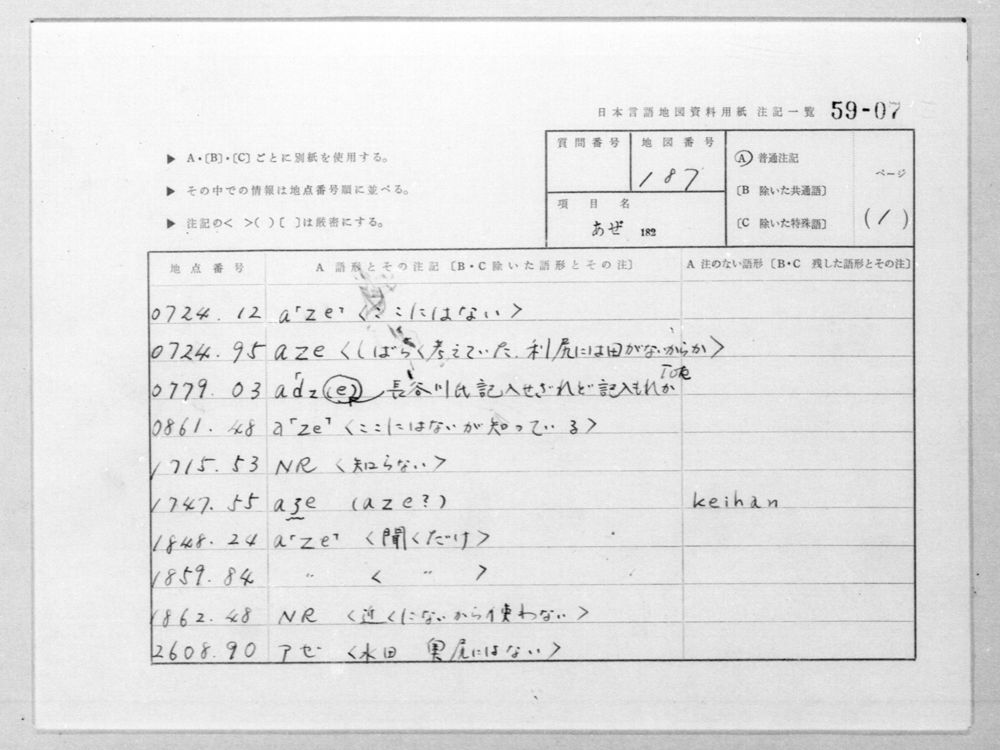 日本言語地図資料用紙 注記一覧 59-07
▶ A・〔B〕・〔C〕ごとに別紙を使用する。
▶ その中での情報は地点番号順に並べる。
▶ 注記の< >( )[ ]は厳密にする。
質問番号
地図番号
187
項目名
あぜ 182
Ⓐ 普通注記
〔B 除いた共通語〕
〔C 除いた特殊語〕
ページ
(1)
地点番号 A 語形とその注記〔B・C除いた語形とその注〕 A 注のない語形〔B・C 残した語形とその注〕
0724.12 a「ze」〈ここにはない〉
0724.95 aze〈しばらく考えていた.利尻には田がないからか〉
0779.03 a「dz(e) 長谷川氏記入せざれど記入もれか
0861.48 a「ze」〈ここにはないが知っている〉
1715.53 NR〈知らない〉
1747.55 aʒe (aze?) keihan
1848.24 a「ze」〈聞くだけ〉
1859.84 〃 〈 〃 〉
1862.48 NR〈近くにないから使わない〉
2608.90 アゼ〈水田 奥尻にはない〉